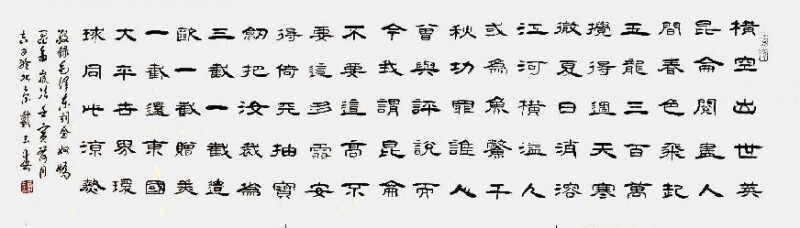 橫空出世莽
昆侖閱盡人
間春色飛起
玉龍三百萬
攪得週天寒
徹夏日消溶
江河橫溢人
或為魚鱉千
秋功罪誰人
曾與評說而
今我謂昆侖
不要這高不
要這多雪安
得倚天抽寶
劍把汝裁為
三截一截遺
歐一截贈美
一截還東國
大平世界環
球同此涼熱
敬錄毛澤東詞念奴嬌
昆侖歲次壬寅荷月
吉日於北京